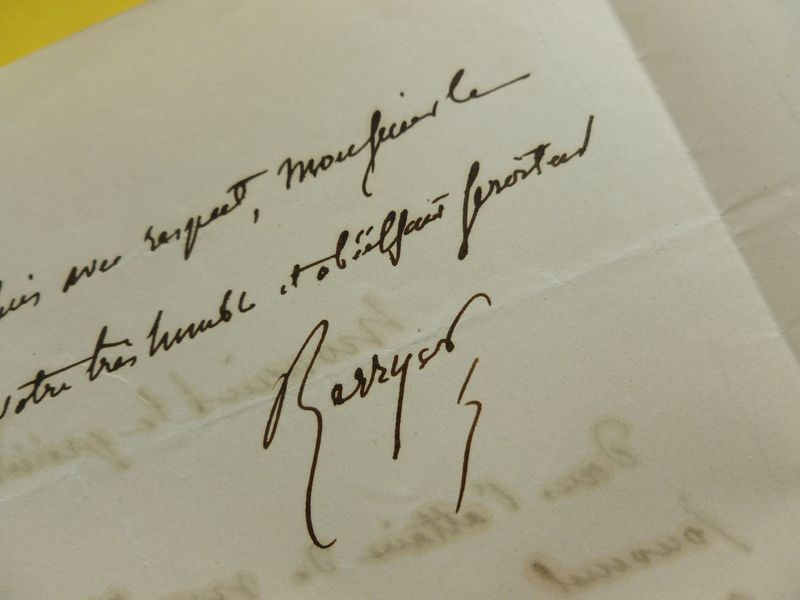 suis avec respect, Monsieur le
votre très humble et obéissant serviteur
Berryer
Dans l'affaire de